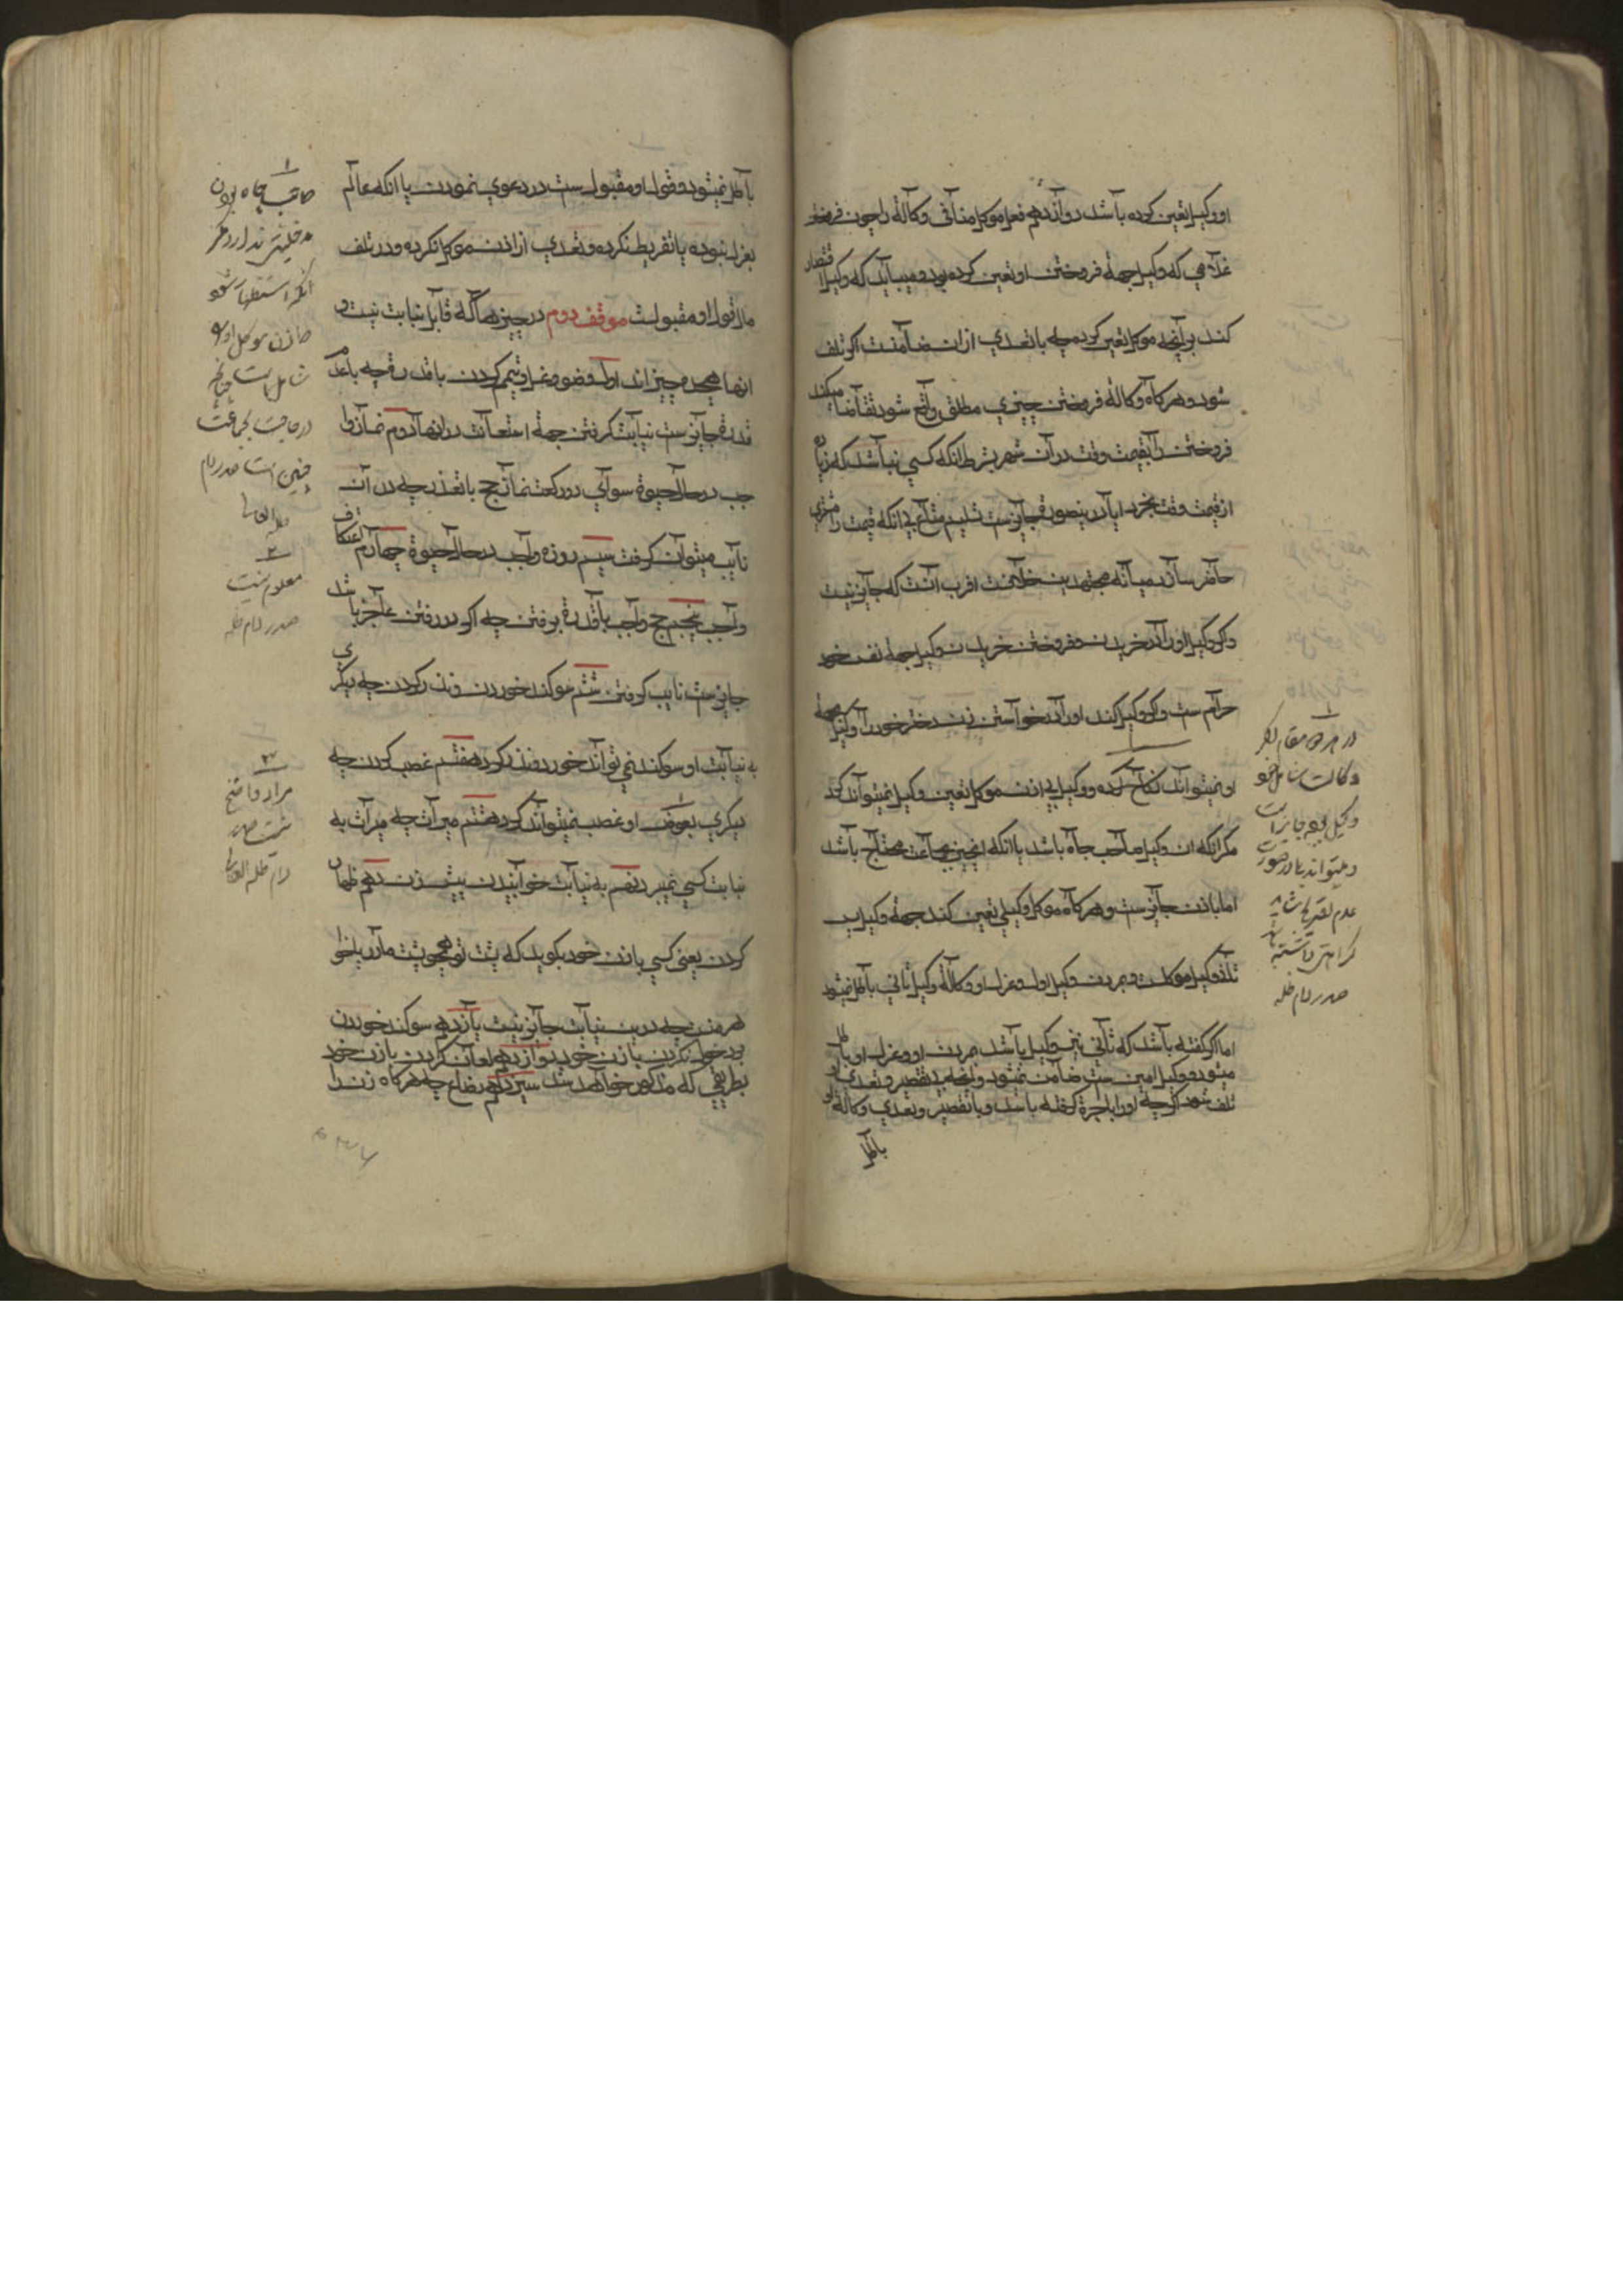 او وکیل تعین کرده باشد دوازدهم فعل موکل منافی وکالة را چون فروختن
غلامی که وکیل جهة فروختن او تعین کرده بود و میباید که وکیل اقتصار
کند برآنچه موکل تعین کرده چه با تعدی ازان ضامنست اگر تلف
شود و هرکاه وکالة فروختن چیزی مطلق واقع شود تقاضا میکند
فروختن را بقیمت وقت در آن شهر بشرط آنکه کسی نباشد که زیاده
از قیمت وقت بخرد ایا درینصورة جایزست تسلیم متاع بی انکه قیمت را مشتری
حاضر سازد میانه مجتهدین خلافست اقرب آنست که جایز نیست
و کر وکیل اورا در خریدن و فروختن خریدن وکیل جهة نفس خود
حرام ست و کر وکیل کند اورا در خواستن زن دختر خود را وکیل جهة
او نمیتواند نکاح کرد و وکیل بی اذن موکل تعین وکیل نمیتواند کرد
مکر انکه ان وکیل صاحب جاه باشد یا انکه انچیز بجماعت محتاج باشد
اما باذن جایزست و هرکاه موکل وکیلی تعین کند جهة وکیل پس
وکیل موکلست و بمردن وکیل اول و عزل او وکالة وکیل ثانی باطل نمیشود
اما اکر کفته باشد که ثانی نیز وکیل باشد بمردن او و عزل او باطل
میشود و وکیل امین ست ضامن نمیشود و آنچه بی تقصیر و تعدی او
تلف شود اکرچه اورا باجرة کرفته باشد و با تقصیر و تعدی وکالة او
باطل
در هر دو مقام اگر
وکالت شامل خود
وکیل بوده جایز است
و میتواند بود در صورت
عدم تصریح شاید
کراهتی داشته باشد
صدر دام ظله
باطل نمیشود و قول او مقبول ست در دعوی نمودن یا انکه عالم
بعزل نبوده یا تفریط نکرده و تعدی از اذن موکل نکرده و در تلف
مال قول او مقبولست موقف دوم در چیزهاکه قابل نیابت نیست و
انها هیجده چیزاند اول وضو و غسل و تیمم کردن با قدرة چه با عدم
قدرة جایزست نیابت کرفتن جهة استعانت در انها دوم نماز وا
جب در حال حیوة سوای دو رکعت نماز حج با تعذر چه در آن
نایب میتوان کرفت سیم روزه واجب در حال حیوة چهارم اعتکاف
واجب پنجم حج واجب با قدرة برفتن چه اکر در رفتن عاجز باشد
جایزست نایب کرفتن ششم سوکند خوردن و نذر کردن چه دیکری
به نیابت او سوکند نمی تواند خورد و نذر کرد هفتم غصب کردن چه
دیکری بعوض او غصب نمیتواند کرد هشتم میراث چه میراث به
نیابت کسی نمیبرد نهم به نیابت خوابیدن پیش زن دهم ظهار
کردن یعنی کسی با زن خود بکوید که پشت تو همچو پشت مادر یا خوا
هر منست چه درین نیابت جایز نیست یازدهم سوکند خوردن
بدخول نکردن با زن خود دوازدهم لعان کردن با زن خود
بطریقی که مذکور خواهد شد سیزدهم رضاع چه هرکاه زن را
صاحب جاه بودن
مدخلیتی ندارد مگر
انکه استظهار شود
که اذن موکل او را
شامل است چنانچه
در حاجت بجماعت
چنین است صدر دام
ظله العالی
معلوم نیست
صدر دام ظله
مراد واضح
نیست صدر
دام ظله العالی